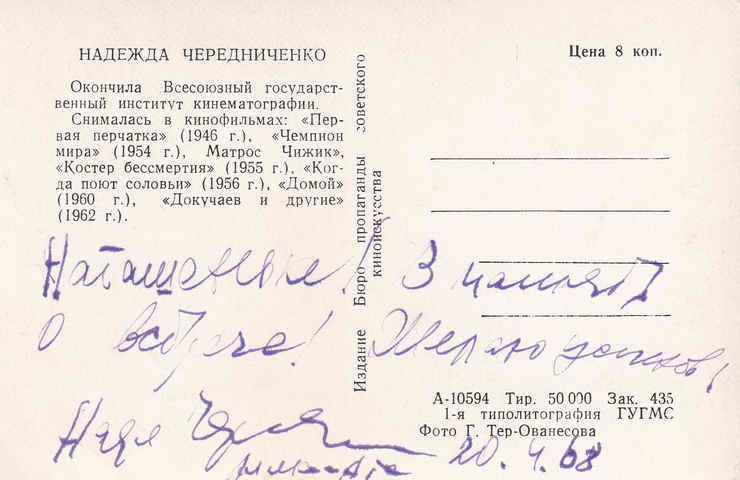 НАДЕЖДА ЧЕРЕДНИЧЕНКО
Окончила Всесоюзный государст-
венный институт кинематографии.
Снималась в кинофильмах: «Пер-
вая перчатка» (1946 г.), «Чемпион
мира» (1954 г.), Матрос Чижик»,
«Костер бессмертия» (1955 г.), «Ког-
да поют соловьи» (1956 г.), «Домой»
(1960 г.), «Докучаев и другие»
(1962 г.).
Издание Бюро пропаганды советского
киноискусства
Цена 8 коп.
Наташеньке! В память
о встрече! Желаю успехов!
Надя
20.4.68
А-10594 Тир. 50 000 Зак. 435
1-я типолитография ГУГМС
Фото Г. Тер-Ованесова